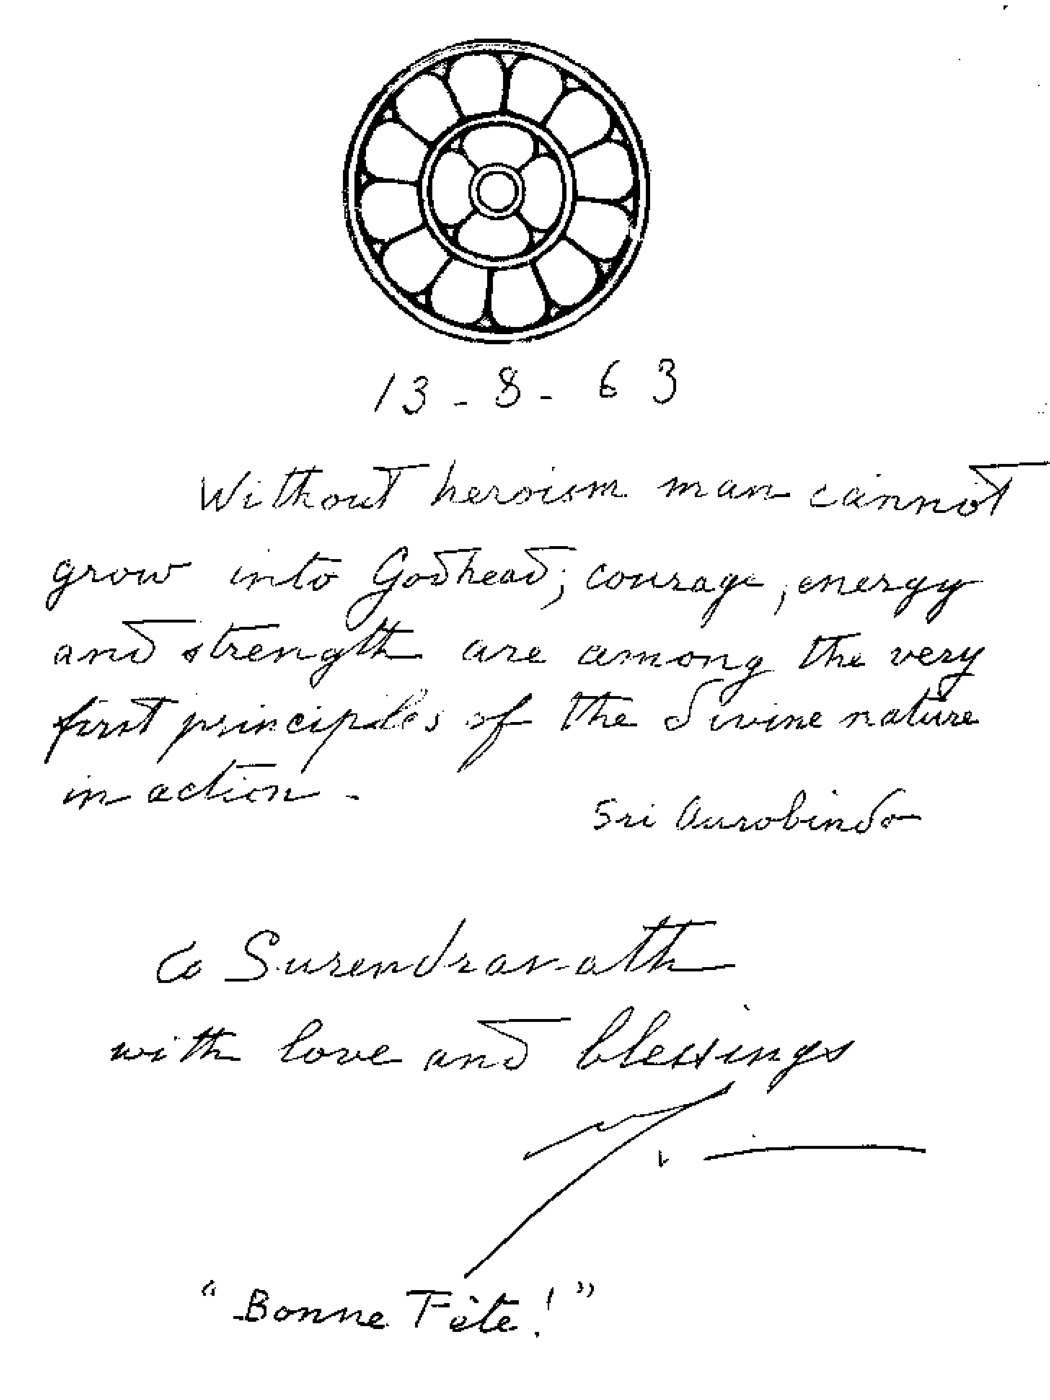 13-8-63
Without heroism man cannot
grow into Godhead; courage, energy
and strength are among the very
first principles of the divine nature
in action.
Sri Aurobindo
to Surendranath
with love and blessings
"Bonne Fête!"